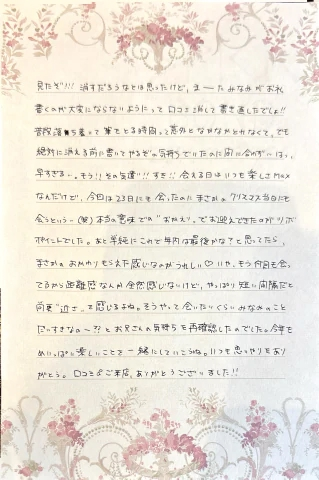 見たぞ!!! 消すだろうなとは思ったけど、まーたみなみがお礼
書くのが大変にならないようにって口コミ消して書き直したでしょ!!
普段落ち着って筆をとる時間って意外となかなかとれなくて、でも
絶対に消える前に書いてやるぞの気持ちでいたのに間に合わず…はっ、
早すぎる…。そう!!その気遣!!! すき!! 会える日はいつも楽しさMax
なんだけど、今回は23日にも会ったのにまさかのクリスマス当日にも
会うという…(笑)本当の意味での"おかえり"でお迎えできたのがツボ
ポイントでした。あと単純にこれで年内は最後かな?と思ってたら、
まさかのおかわりもらえた感じなのがうれしい♡いや、もう何日も会っ
てるから距離感なんか全然感じないけど、やっぱり短い間隔だと
尚更"近さ"って感じるよね。そうやって会いたいくらいみなみのこと
だいすきなの〜??とお兄さんの気持ちを再確認したのでした。今年も
めいっぱい楽しいことを一緒にしていこうね。いつも思いやりをあり
がとう。口コミ&ご来店、ありがとうございました!!